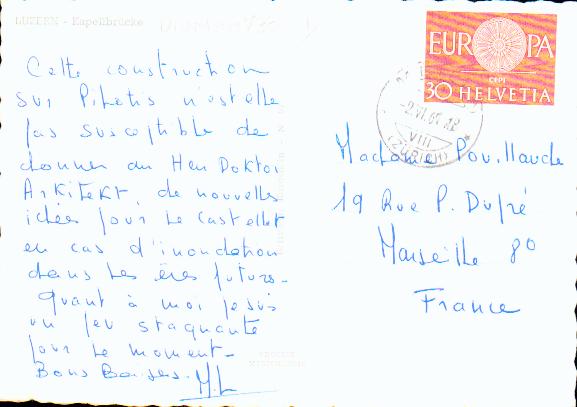 LUZERN - Kapellbrücke
Cette construction
sur Pilotis n'est elle
pas susceptible de
donner au Herr Doktor
Arkitekt, de nouvelles
idées pour le Castellet
en cas d'inondation
dans les ères futurs-
Quant à moi je suis
un peu stagnante
pour le moment-
Bons Baisers. M.L
EUROPA
CEPT
30 HELVETIA
VIII
(ZÜRICH)
Madame Pouillaude
19 Rue P. Dupré
Marseille 8º
France